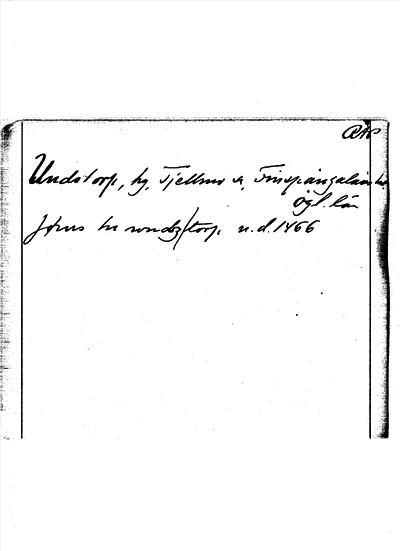 Undstorp, by, Tjellmo s, Finspångaläns hd
Ögl. län
Jöns in wndz/torp. u.d. 1466